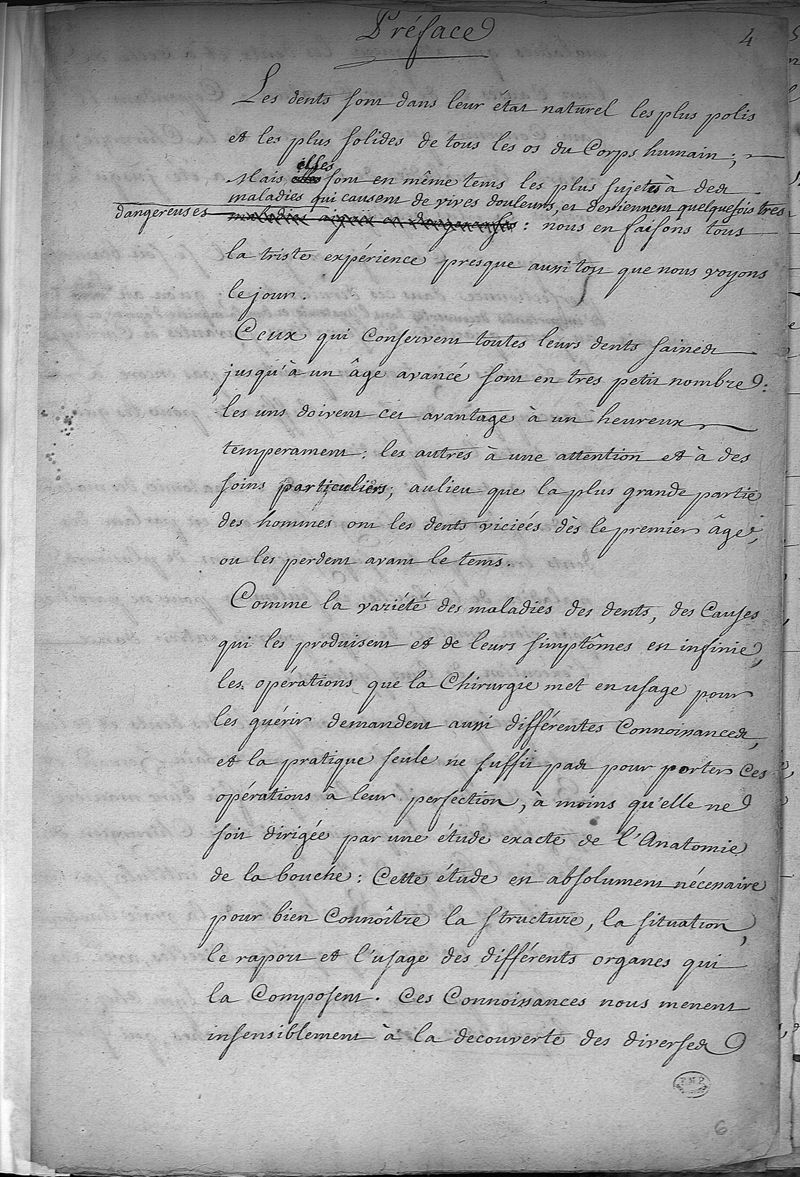 Préface
4
Les dents sont dans leur état naturel les plus polis
et les plus solides de tous les os du Corps humain ;
Mais elles sont en même tems les plus sujetes à des
maladies qui causent de vives douleurs, et deviennent quelquefois tres
dangereuses : nous en faisons tous
la triste expérience presque aussitôt que nous voyons
le jour.
Ceux qui conservent toutes leurs dents saines
jusqu'à un âge avancé sont en tres petit nombre :
les uns doivent cet avantage à un heureux
temperament : les autres à une attention et à des
soins particuliers ; aulieu que la plus grande partie
des hommes ont les dents viciées dès le premier âge,
ou les perdent avant le tems.
Comme la variété des maladies des dents, des Causes
qui les produisent et de leurs simptômes est infinie,
les opérations que la Chirurgie met en usage pour
les guérir demandent aussi différentes Connoissances,
et la pratique seule ne suffit pas pour porter Ces
opérations à leur perfection, à moins qu'elle ne
soit dirigée par une étude exacte de l'Anatomie
de la bouche : Cette étude est absolument nécessaire
pour bien Connoître la structure, la situation,
le raport et l'usage des différents organes qui
la Composent. Ces Connoissances nous menent
insensiblement à la decouverte des diverses
6